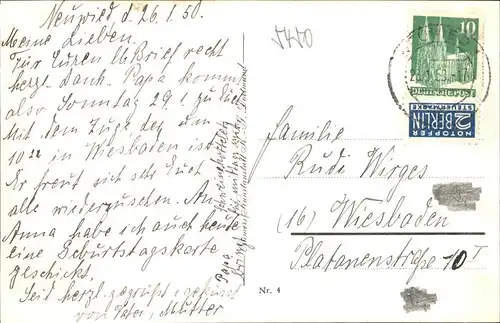 Neuwied d. 26.1.50.
Meine Lieben.
Für Euren lb. Brief recht
herzl. Dank. Papa kommt
also Sonntag 29.1. zu Euch
Mit dem Zuge der um
10 22 in Wiesbaden ist.
Er freut sich sehr Euch
alle wiederzusehen. An
Anna habe ich auch heute
eine Geburtstagskarte
geschickt.
Seid herzl. gegrüßt u. geküsst
von Vater, Mutter
Papa
5450
Nr. 4
10
DEUTSCHE POST
NOTOPFER
2 BERLIN
STEUERMARKE
Familie
Rudi Wirges
(16) Wiesbaden
Platanenstraße 10 I